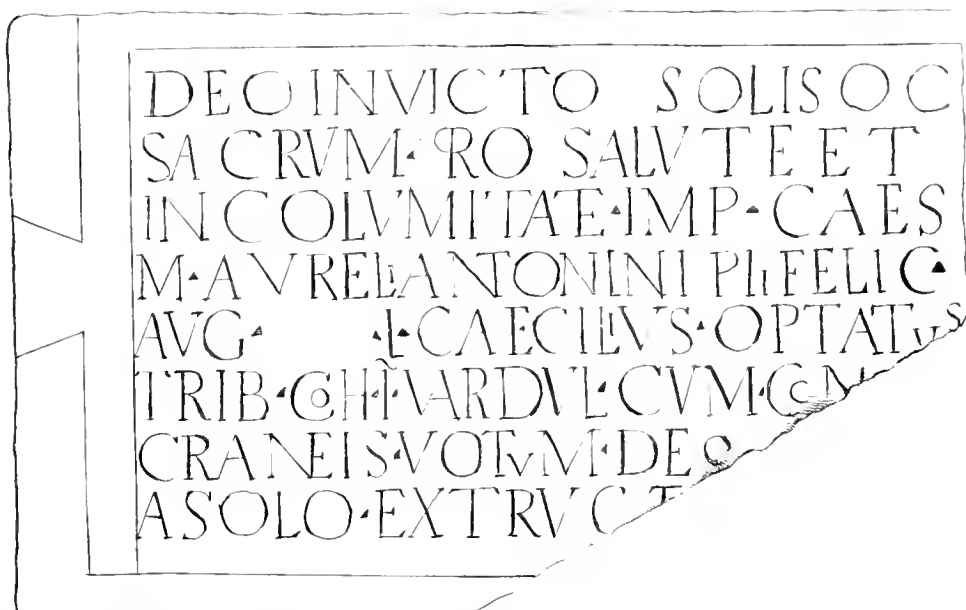 DEO INVICTO SOLI SOC
SACRVM · PRO SALVTE ET
INCOLVMITATE · IMP · CAES
M · AVRELI ANTONINI PII FELIC ·
AVG · · L · CAECILIVS · OPTATVS
TRIB · COH · I · VARDVL · CVM · CON
CRANEIS · VOTVM · DEO
A SOLO · EXTRVCT